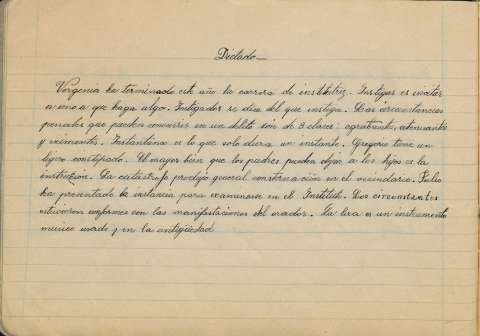 Dictado
Virginia ha terminado este año la carrera de institutriz. Instigar es incitar
a uno a que haga algo. Instigador se dice del que instiga. Las circunstancias
penales que pueden concurrir en un delito son de 3 clases: agravantes, atenuantes
y eximentes. Instantánea es lo que solo dura un instante. Gregorio tiene un
ligero constipado. El mayor bien que los padres pueden dejar a los hijos es la
instrucción. La catástrofe produjo general consternación en el vecindario. Julio
ha presentado la instancia para examinarse en el Instituto. Los circunstantes
estuvieron conformes con las manifestaciones del orador. La lira es un instrumento
músico usado en la antigüedad